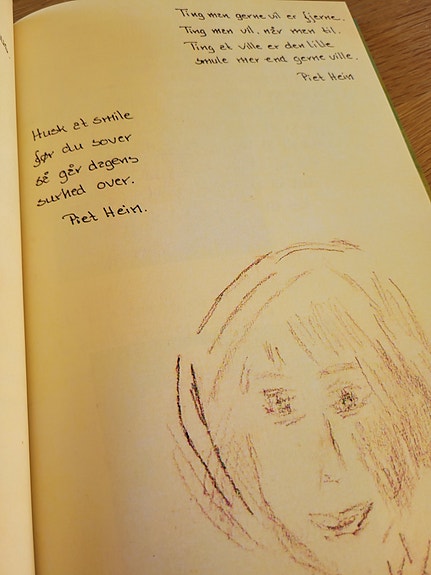 Ting man gerne vil er fjerne.
Ting man vil, når man til.
Ting at ville er den lille
smule mer end gerne ville.
Piet Hein
Husk at smile
før du sover
så går dagens
surhed over.
Piet Hein.